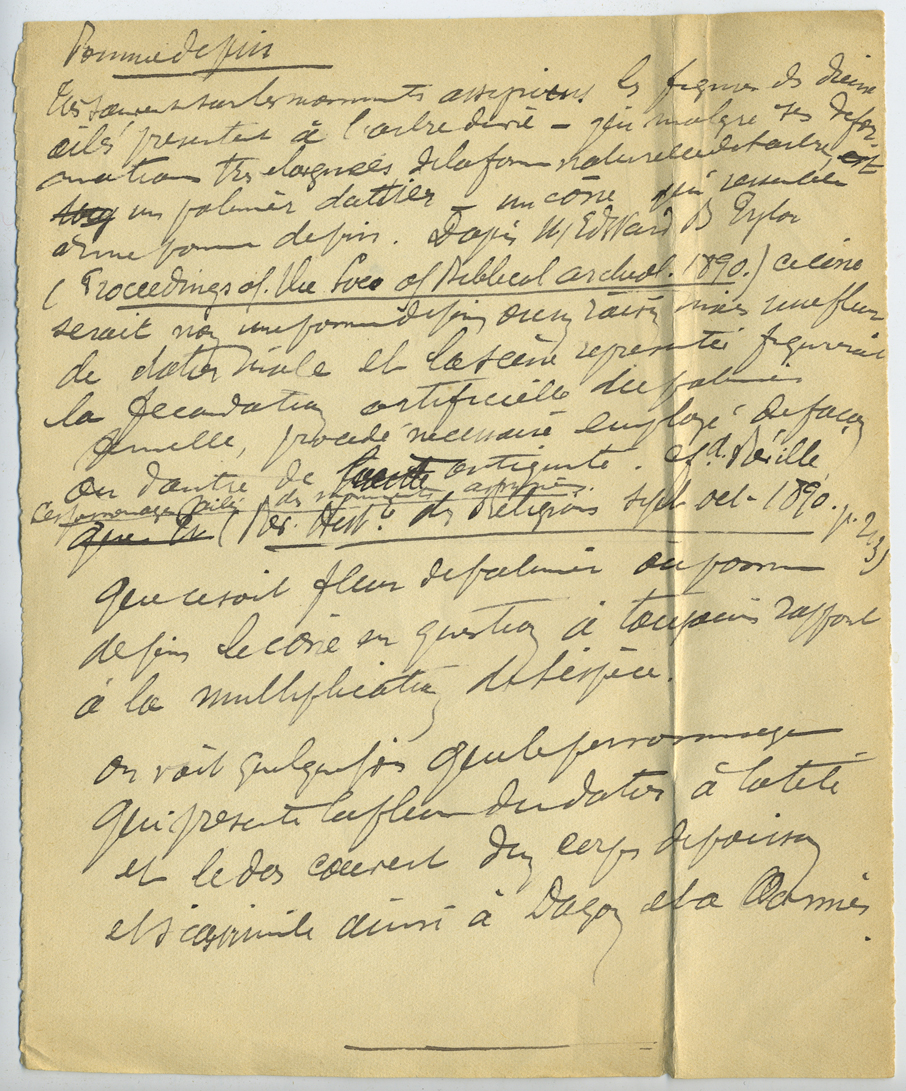 Pomme de pin
Très souvent sur les monuments assyriens les figures de dieux
ailés présentent à l'arbre divin – qui malgré ses défor-
mations très éloignées de la forme naturelle de l'arbre, est
un palmier dattier – un cône qui ressemble
à une pomme de pin. D'après M. Edward B Tylor
(Proceedings of the Soco of Biblical archeol. 1890.) ce cône
serait non une pomme de pin ou un raisin mais une fleur
de dattier mâle et la scène représentée figurerait
la fécondation artificielle du palmier
femelle, procédé nécessaire employé de façon
ou d'autre de toute antiquité. cf. Réville
ces personnages ailés des monuments assyriens.
(Rev. Hist. des Religions sept. oct. 1890. p. 213)
que ce soit fleur de palmier ou pomme
de pin le cône en question a toujours rapport
à la multiplication de l'espèce.
on voit quelquefois que le personnage
qui présente la fleur du dattier à la tête
et le dos couvert d'un corps de poisson
et s'assimile ainsi à Dagon et a Oannès.